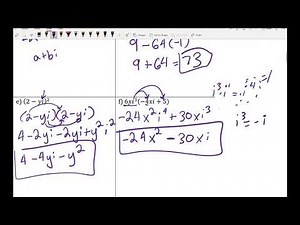 a+bi
9-64(-1)
9+64=73
e) (2 – yi)²
(2-yi)(2-yi)
4-2yi-2yi+y²i²
4-4yi-y²
f) 6xi³(-4xi + 5)
-24x²i⁴+30xi³
-24x²-30xi
i³=-i